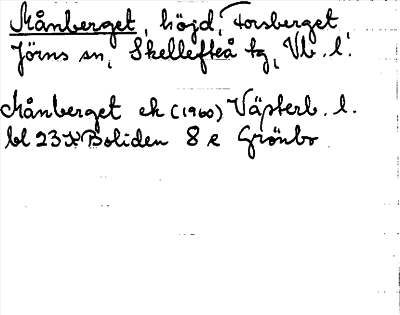 Månberget, höjd, Forsberget,
Jörns sn, Skellefteå tg, Vb. l.
Månberget ek (1960) Västerb. l.
bl 23K Boliden 8 e Grönbo